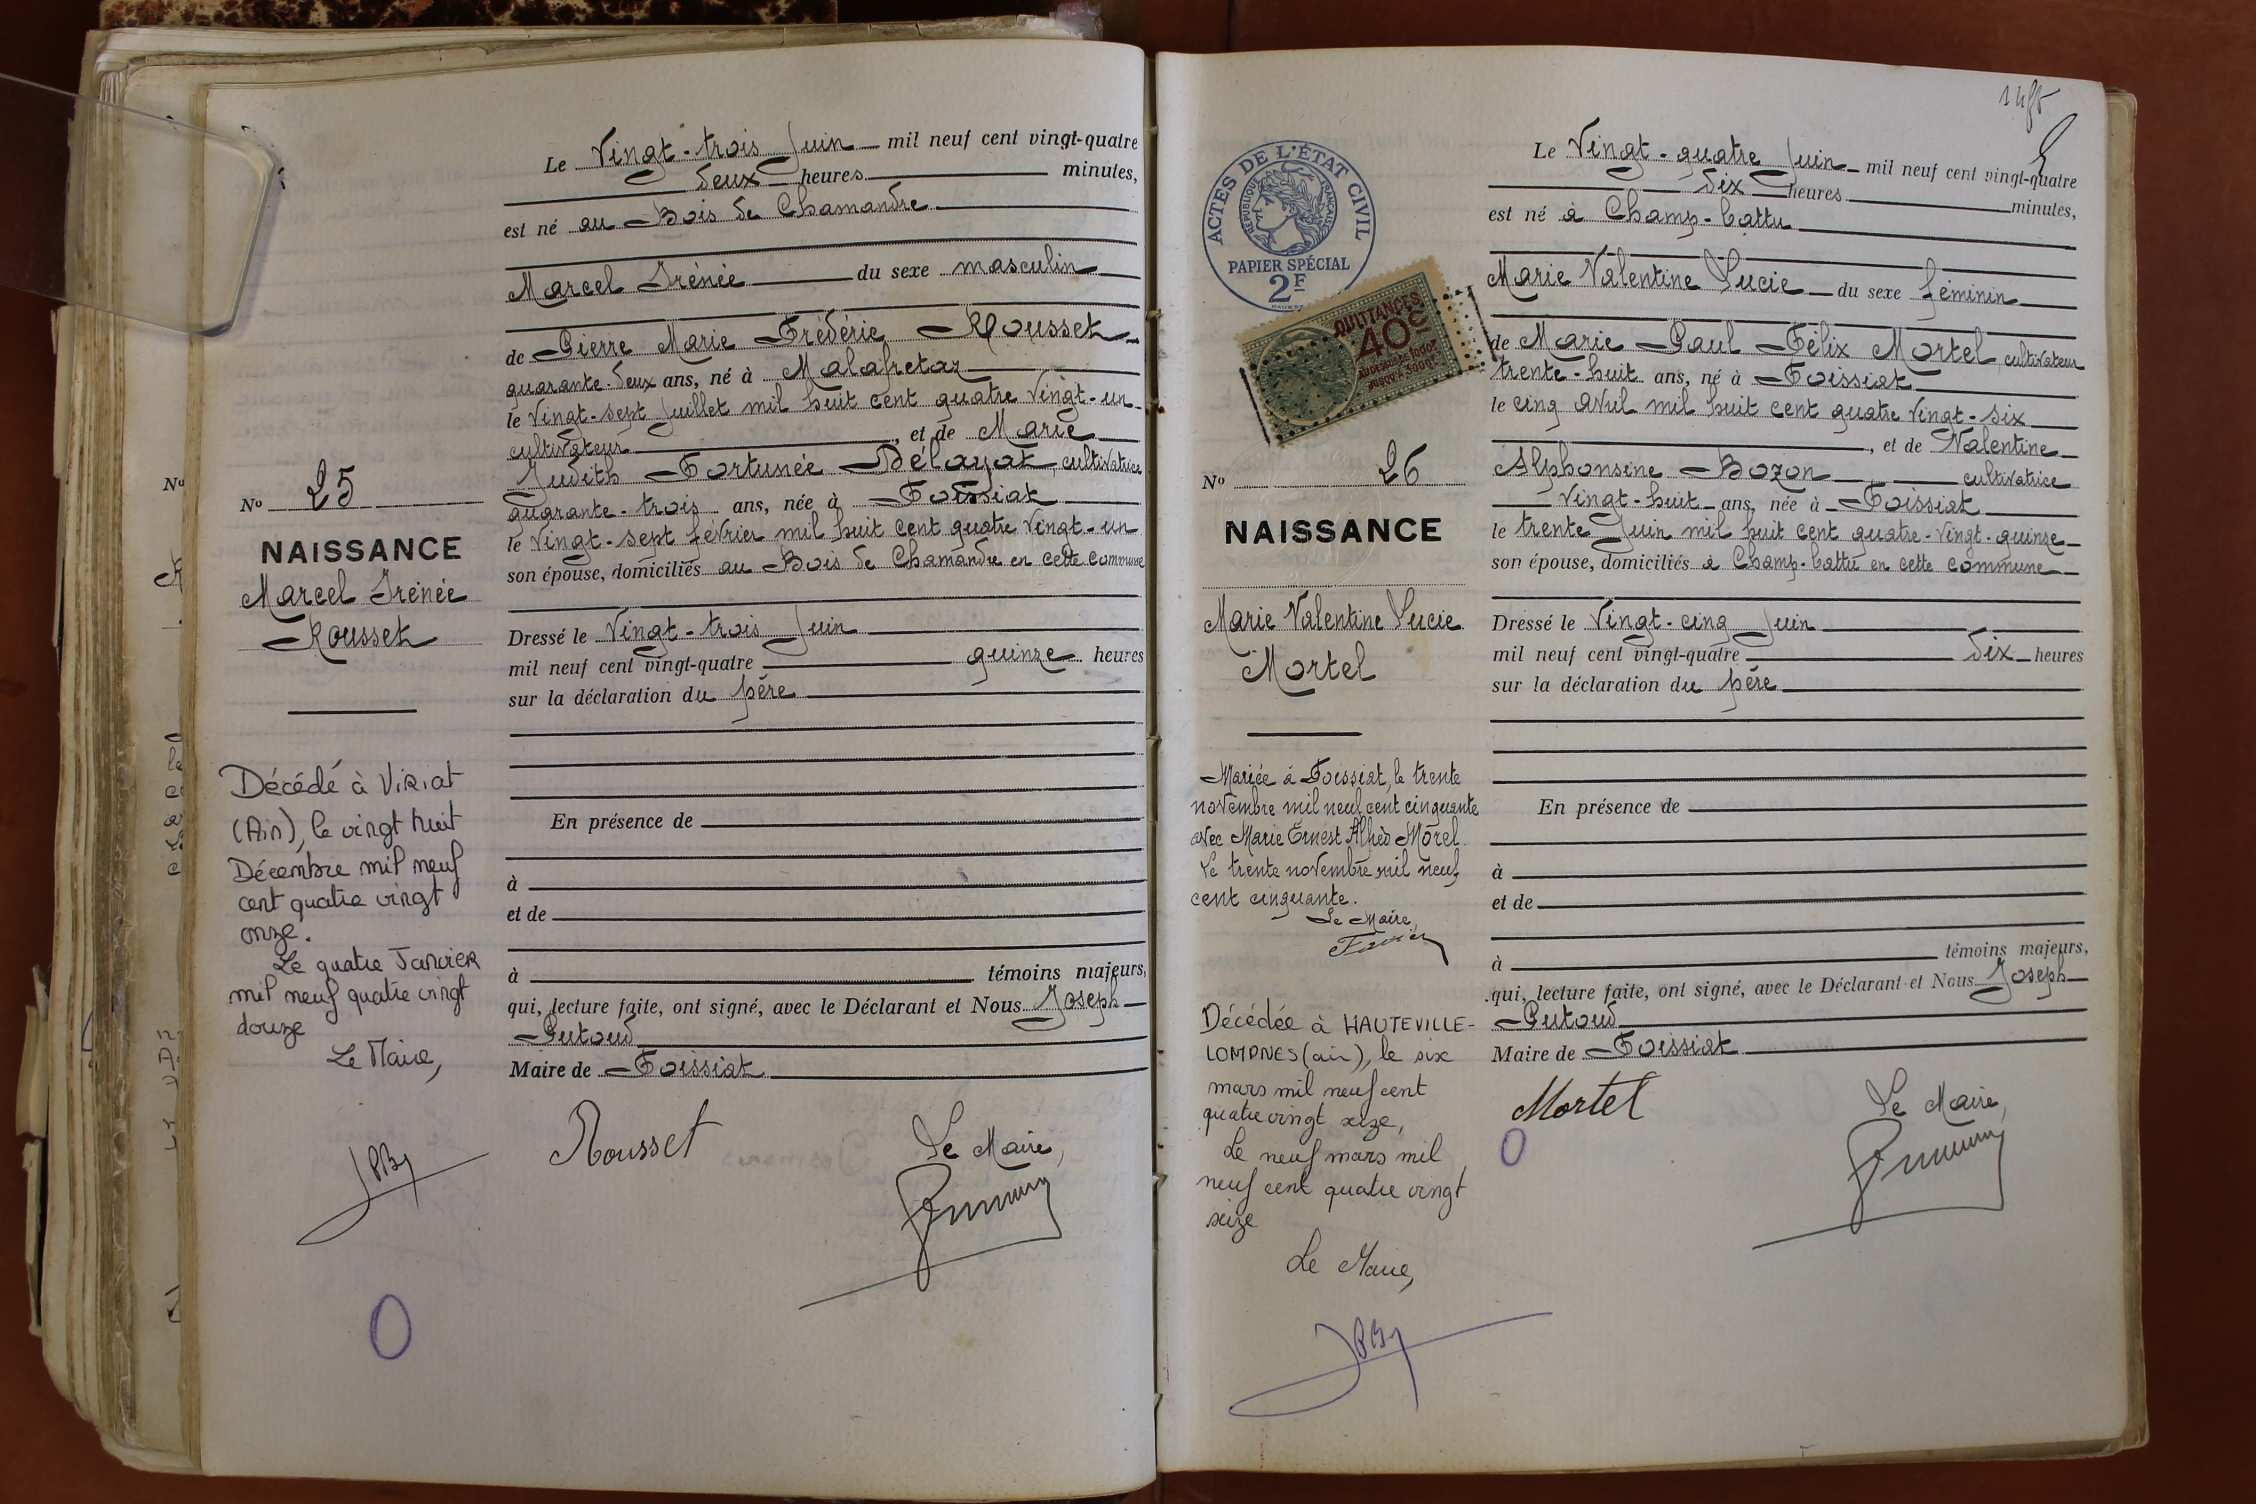 Le Vingt-trois Juin mil neuf cent vingt-quatre
deux heures minutes,
est né au Bois de Chamandre
Marcel Irénée du sexe masculin
de Pierre Marie Frédéric Rousset
quarante-deux ans, né à Malafretaz
le vingt-sept Juillet mil huit cent quatre vingt-un
cultivateur, et de Marie
Judith Fortunée Délayat, cultivatrice
quarante-trois ans, née à Foissiat
le vingt-sept février mil huit cent quatre vingt-un
son épouse, domiciliés au Bois de Chamandre en cette commune
Dressé le Vingt-trois Juin
mil neuf cent vingt-quatre quinze heures
sur la déclaration du père
En présence de
à
et de
à témoins majeurs,
qui, lecture faite, ont signé, avec le Déclarant et Nous Joseph
Putoud
Maire de Foissiat
Rousset
Le Maire,
No
No 25
NAISSANCE
Marcel Irénée
Rousset
Décédé à Viriat
(Ain), le vingt huit
Décembre mil neuf
cent quatre vingt
onze.
Le quatre Janvier
mil neuf quatre vingt
douze
Le Maire,
ACTES DE L'ÉTAT CIVIL
RÉPUBLIQUE FRANÇAISE
PAPIER SPÉCIAL
2F
QUITTANCES
40c
No 26
NAISSANCE
Marie Valentine Lucie
Mortel
Mariée à Foissiat, le trente
novembre mil neuf cent cinquante
avec Marie Ernest Alfred Morel.
Le trente novembre mil neuf
cent cinquante.
Le Maire,
Décédée à HAUTEVILLE-
LOMPNES (ain), le six
mars mil neuf cent
quatre vingt seize,
Le neuf mars mil
neuf cent quatre vingt
seize
Le Maire,
Le Vingt-quatre Juin mil neuf cent vingt-quatre
dix heures minutes,
est né à Champ-battu
Marie Valentine Lucie du sexe féminin
de Marie Paul Félix Mortel, cultivateur
trente-huit ans, né à Foissiat
le cinq avril mil huit cent quatre vingt-six
, et de Valentine
Alphonsine Bozon cultivatrice
vingt-huit ans, née à Foissiat
le trente Juin mil huit cent quatre-vingt-quinze
son épouse, domiciliés à Champ-battu en cette commune
Dressé le Vingt-cinq Juin
mil neuf cent vingt-quatre dix heures
sur la déclaration du père
En présence de
à
et de
à témoins majeurs,
qui, lecture faite, ont signé, avec le Déclarant et Nous Joseph
Putoud
Maire de Foissiat
Mortel
Le Maire,